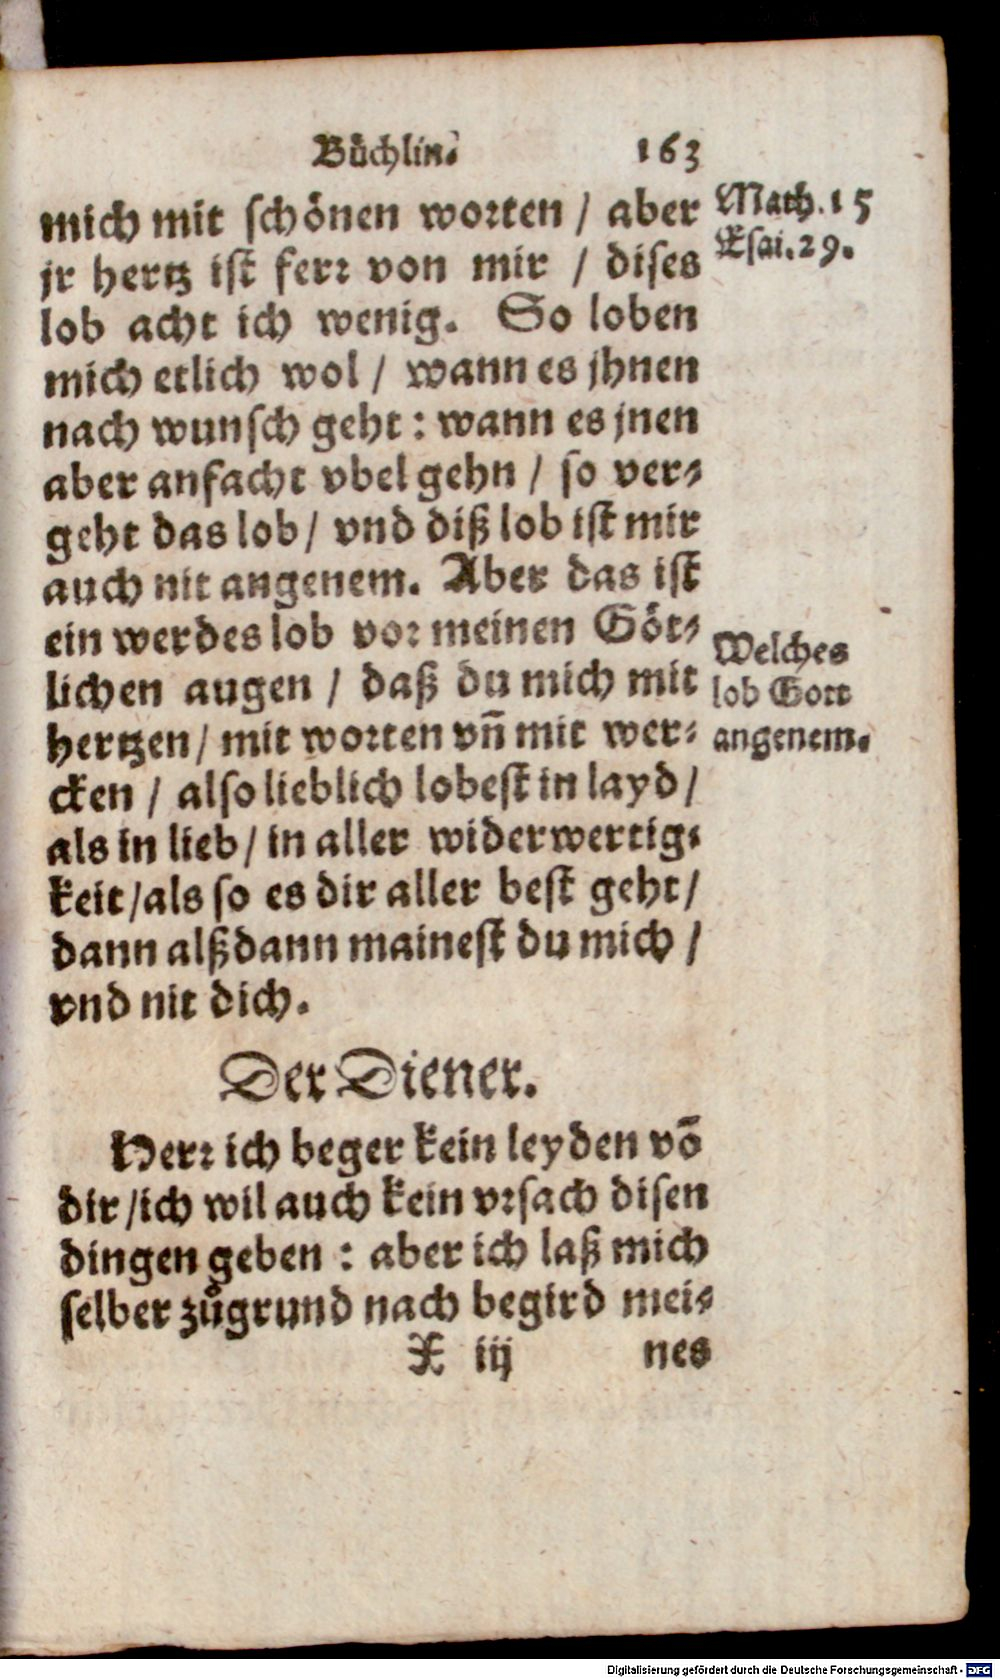 Bůchlin. 163
mich mit schönen worten / aber
jr hertz ist ferr von mir / dises
lob acht ich wenig. So loben
mich etlich wol / wann es jhnen
nach wunsch geht : wann es jnen
aber anfacht vbel gehn / so ver⸗
geht das lob / vnd diß lob ist mir
auch nit angenem. Aber das ist
ein werdes lob vor meinen Göt⸗
lichen augen / daß du mich mit
hertzen / mit worten vñ mit wer⸗
cken / also lieblich lobest in layd /
als in lieb / in aller widerwertig⸗
keit / als so es dir aller best geht /
dann alßdann mainest du mich /
vnd nit dich.
Math. 15
Esai. 29.
Welches
lob Gott
angenem.
Der Diener.
Herr ich beger kein leyden võ
dir / ich wil auch kein vrsach disen
dingen geben : aber ich laß mich
selber zůgrund nach begird mei⸗
X iij nes
Digitalisierung gefördert durch die Deutsche Forschungsgemeinschaft - DFG